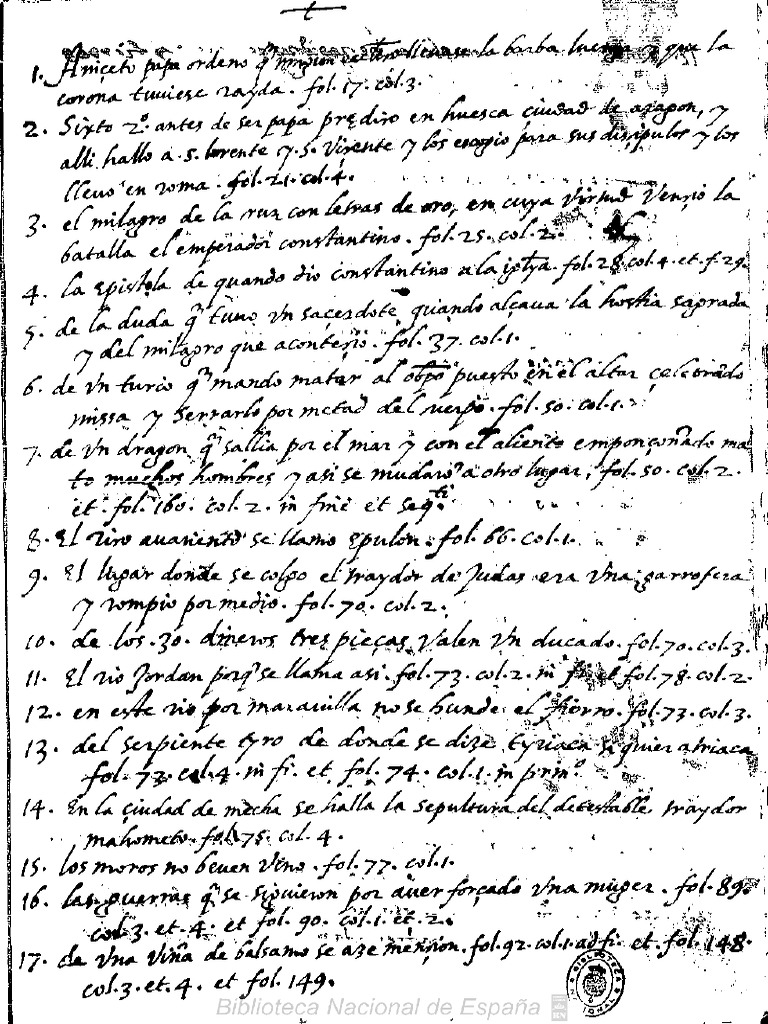 +
1. Aniçeto papa ordeno q̃ ningun llevase la barba luenga y que la
corona tuviese rayda. fol. 17. col. 3.
2. Sixto 2.º antes de ser papa predico en huesca ciudad de aragon, y
alli hallo a .s. lorente y .s. Vicente y los escogio para sus discipulos y los
llevo en roma. fol. 21. col. 4.
3. el milagro de la cruz con letras de oro, en cuya Virtud Vençio la
batalla el emperador constantino. fol. 25. col. 2.
4. la epistola de quando dio constantino a la iglª. fol. 28. col. 4. et. f. 29.
5. de la duda q̃ tuvo Vn saçerdote quando alçava la hostia sagrada
y del milagro que aconteçio. fol. 37. col. 1.
6. de Vn turco q̃ mando matar al obpõ puesto en el altar çelebrãdo
missa y serrarlo por metad del cuerpo. fol. 50. col. 1.
7. de Vn dragon q̃ sallia por el mar y con el aliento emponçoñado ma
to muchos hombres y asi se mudarõ a otro lugar, fol. 50. col. 2.
et. fol. 160. col. 2. in fine et seqti.
8. El rico avariento se llamo Epulon. fol. 66. col. 1.
9. El lugar donde se colgo el traydor de Judas era Vna garrofera
y rompio por medio. fol. 70. col. 2.
10. de los .30. dineros tres pieças Valen Vn ducado. fol. 70. col. 3.
11. El rio Jordan porq̃ se llama asi. fol. 73. col. 2. in fi. et fol. 78. col. 2.
12. en este rio por maravilla no se hunde el fierro. fol. 73. col. 3.
13. del serpiente tyro de donde se dize tyriaca si quier atriaca
fol. 73. col. 4. in fi. et fol. 74. col. 1. in prinº.
14. En la çiudad de mecha se halla la sepultura del detestable traydor
mahometo. fol. 75. col. 4.
15. los moros no beven Vino. fol. 77. col. 1.
16. las guerras q̃ se siguieron por aver forçado Vna muger. fol. 89.
col. 3. et. 4. et fol. 90. col. 1. et. 2.
17. de Vna viña de balsamo se aze mençion. fol. 92. col. 1. ad fi. et. fol. 148.
col. 3. et. 4. et fol. 149.
Biblioteca Nacional de España